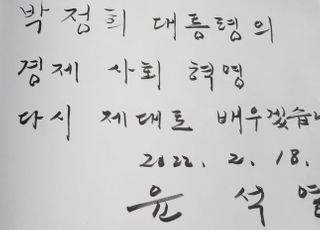 박정희 대통령의
경제 사회 혁명
다시 제대로 배우겠습니
2022. 2. 18.
윤 석 열